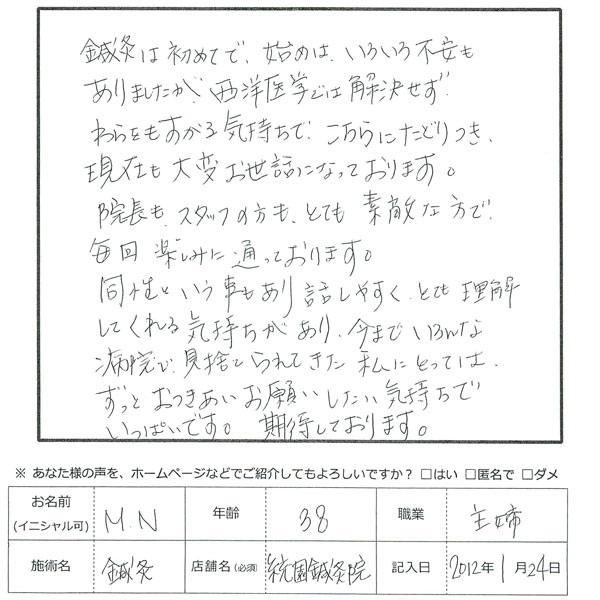 鍼灸は初めてで、始めは、いろいろ不安も
ありましたが、西洋医学では解決せず
わらをもすがる気持ちで、こちらにたどりつき、
現在も大変お世話になっております。
院長も、スタッフの方も、とても素敵な方で、
毎回楽しみに通っております。
同性という事もあり話しやすく、とても理解
してくれる気持ちがあり、今までいろんな
病院で、見捨てられてきた私にとっては、
ずっとおつきあいお願いしたい気持ちで
いっぱいです。期待しております。
※ あなた様の声を、ホームページなどでご紹介してもよろしいですか？ □はい □匿名で □ダメ
お名前 (イニシャル可) M.N 年齢 38 職業 主婦
施術名 鍼灸 店舗名 (必須) 鍼灸院 記入日 2012年1月24日